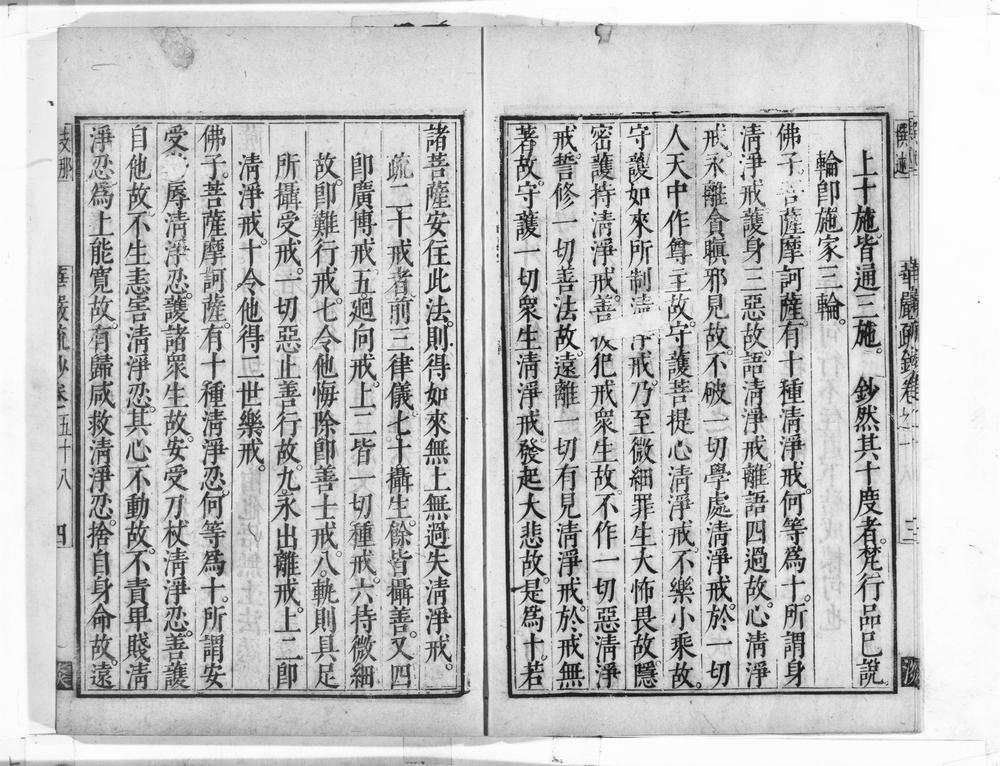 上十施。皆通三施。　鈔然其十度者。梵行品已說
輪卽施家三輪。
佛子。菩薩摩訶薩。有十種清淨戒。何等爲十。所謂身
清淨戒。護身三惡故。語清淨戒。離語四過故。心清淨
戒。永離貪瞋邪見故。不破一切學處清淨戒。於一切
人天中作尊主故。守護菩提心清淨戒。不樂小乘故。
守護如來所制清淨戒。乃至微細罪生大怖畏故。隱
密護持清淨戒。善拔犯戒衆生故。不作一切惡清淨
戒。誓修一切善法故。遠離一切有見清淨戒。於戒無
著故。守護一切衆生清淨戒。發起大悲故。是爲十。若
諸菩薩安住此法。則得如來無上無過失清淨戒。
疏二十戒者。前三律儀。七十攝生。餘皆攝善。又四
卽廣博戒。五廻向戒。上二皆一切種戒。六持微細
故。卽難行戒。七令他悔除。卽善士戒。八軌則具足
所攝受戒。一切惡止善行故。九永出離戒。上二卽
清淨戒。十令他得二世樂戒。
佛子。菩薩摩訶薩。有十種清淨忍。何等爲十。所謂安
受辱清淨忍。護諸衆生故。安受刀杖清淨忍。善護
自他故。不生恚害清淨忍。其心不動故。不責卑賤清
淨忍。爲上能寬故。有歸咸救清淨忍。捨自身命故。遠
華嚴疏鈔卷之
華嚴疏鈔卷五十八
四